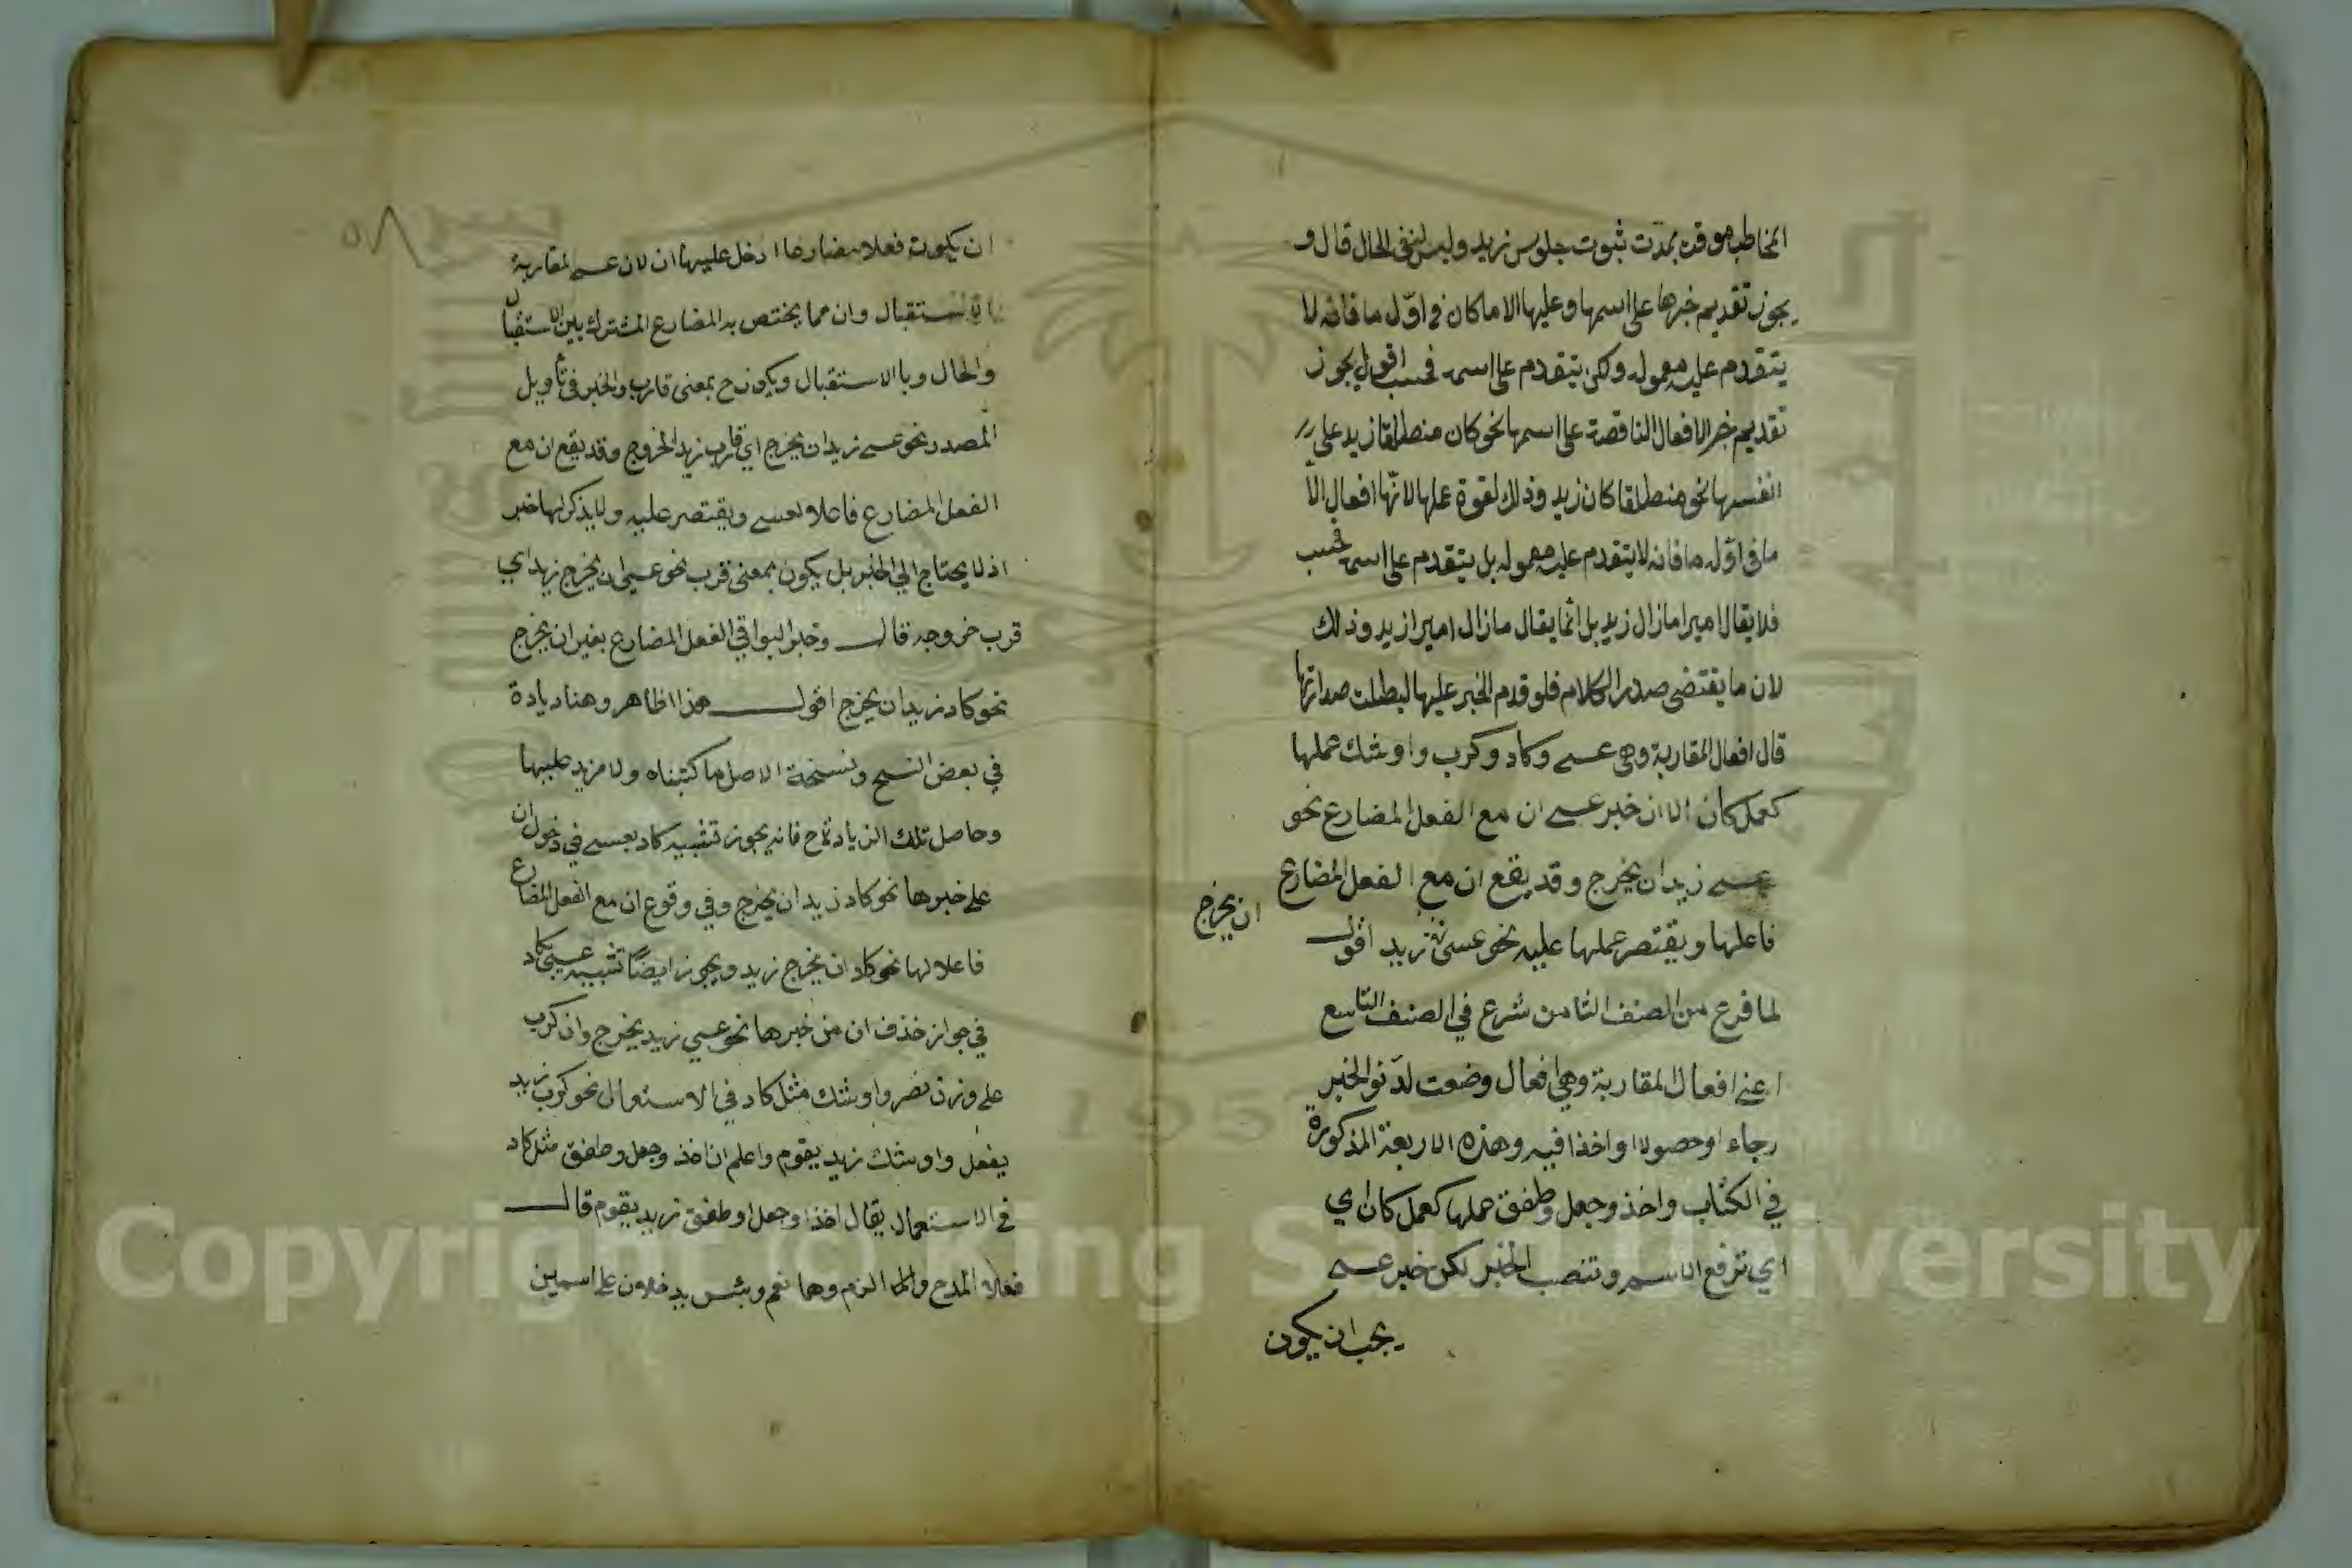 المخاطب موقت بمدت ثبوت جلوس زيد وليس لنفى الحال قال و
يجوز تقديم خبرها على اسمها وعليها الا ما كان في اوّل ما فانه لا
يتقدم عليه معموله ولكن يتقدم على اسمه فحسب اقول يجوز
تقديم خبر الافعال الناقصة على اسمها نحو كان منطلقا زيد على
انفسها نحو منطلقا كان زيد وذلك لقوة عملها لانّها افعال الّا
ما في اوّله ما فانه لا يتقدم عليه معموله بل يتقدم على اسمه فحسب
فلا يقال اميرا مازال زيد بل انّما يقال مازال اميرا زيد وذلك
لان ما يقتضى صدر الكلام فلو قدم الخبر عليها لبطلت صدارتها
قال افعال المقاربة وهى عسى وكاد وكرب واوشك عملها
كعمل كان الا ان خبر عسى ان مع الفعل المضارع نحو
عسى زيد ان يخرج وقد يقع ان مع الفعل المضارع
فاعلها ويقتصر عملها عليه نحو عسى زيد اقول
ان يخرج
لما فرغ من الصنف الثامن شرع في الصنف التاسع
اعنى افعال المقاربة وهى افعال وضعت لدنو الخبر
رجاء او حصولا او اخذا فيه وهذه الاربعة المذكورة
في الكتاب واخذ وجعل وطفق عملها كعمل كان اي
اي ترفع الاسم وتنصب الخبر لكن خبر عسى
يجب ان يكون
٥٨
ان يكون فعلا مضارعا ادخل عليها ان لان عسى لمقاربة
الاستقبال وان مما يختص به المضارع المشترك بين الاستقبال
والحال وبا الاستقبال ويكون ح بمعنى قارب والخبر في تأويل
المصدر نحو عسى زيد ان يخرج اي قارب زيد الخروج وقد يقع ان مع
الفعل المضارع فاعلا لعسى ويقتصر عليه ولا يذكر لها خبر
اذ لا يحتاج الي الخبر بل يكون بمعنى قرب نحو عسى ان يخرج زيد اي
قرب خروجه قال وخبر البواقي الفعل المضارع بغير ان يخرج
نحو كاد زيد ان يخرج اقول هذا ظاهر وهنا زيادة
في بعض النسخ ونسخة الاصل ما كتبناه ولا مزيد عليها
وحاصل تلك الزيادة ح فانه يجوز تشبيه كاد بعسى في دخول ان
على خبرها نحو كاد زيد ان يخرج وفي وقوع ان مع الفعل المضارع
فاعلا لها نحو كاد ان يخرج زيد ويجوز ايضًا تشبيه عسى بكاد
في جواز حذف ان من خبرها نحو عسي زيد يخرج وان كرب
على وزن نصر واوشك مثل كاد في الاستعمال نحو كرب زيد
يفعل واوشك زيد يقوم واعلم ان اخذ وجعل وطفق مثل كاد
في الاستعمال يقال اخذ او جعل او طفق زيد يقوم قال
فعلا المدح والذم وهما نعم وبئس يدخلون على اسمين
Copyright © King Saud University
195